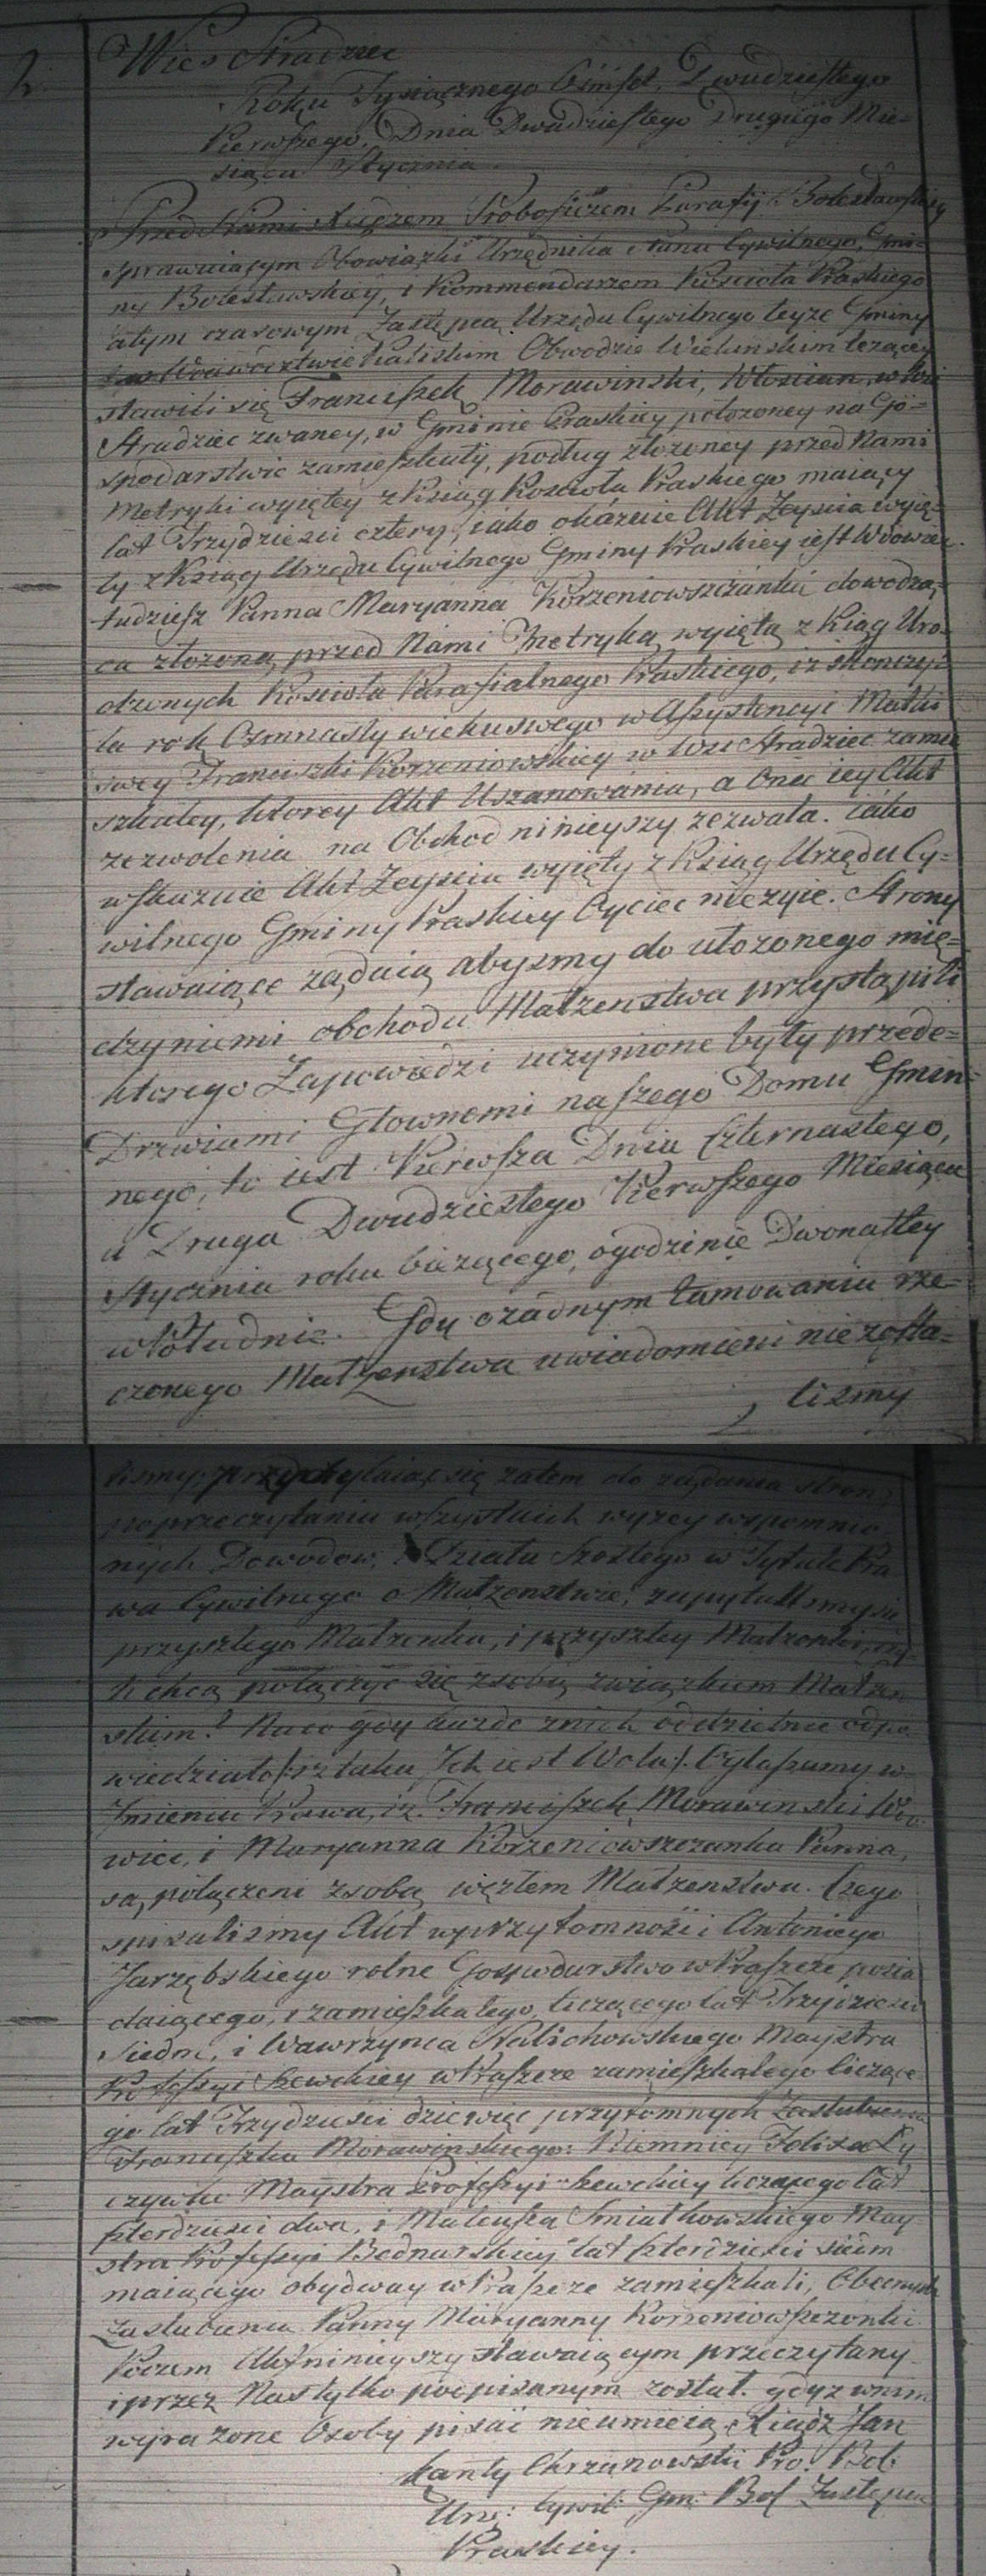 2.
Wieś Stradziec
Roku Tysiącznego Ośmset, Dwudziestego
Pierwszego, Dnia Dwudziestego Drugiego Mie=
siąca Stycznia.
Przed Nami Xiędzem Proboszczem Parafij Bolesławskiey
sprawuiącym Obowiązki Urzędnika Stanu Cywilnego, Gmi=
ny Bolesławskiey, i Kommendarzem Kościoła Praskiego
a tym czasowym Zastępcą Urzędu Cywilnego teyże Gminy
w Woiewództwie Kaliskim Obwodzie Wieluńskim leżącey
stawili się Franciszek Morawinski, Włościan, w Wsi
Stradziec zwaney, w Gminie Praskiey położoney na Go=
spodarstwie zamieszkały, podług złożoney przed Nami
Metryki wyiętey z Ksiąg Kościoła Praskiego maiący
lat Trzydzieści cztery, iako okazuie Akt Zeyscia wyię=
ty z Ksiąg Urzędu Cywilnego Gminy Praskiey iest Wdowiec.
tudziesz Panna Maryanna Korzeniowszczanka dowodzą=
ca złożoną przed Nami Metryką wyiętą z Kiąg Uro=
dzonych Kościoła Parafialnego Praskiego, iż skończy=
ła rok Osmnasty wieku swego w Assystencyi Matki
swey Franciszki Korzeniowskiey w Wsi Stradziec zamie
szkałey, ktorey Akt Uszanowania, a Oney iey Akt
zezwolenia na Obchod ninieyszy zezwala. iako
wskazuie Akt Zeyscia wyięty z Ksiąg Urzędu Cy=
wilnego Gminy Praskiey Oyciec nieżyie. Strony
stawaiące żądaią abysmy do ułożonego mię=
dzy niemi obchodu Małżenstwa przystąpili
ktorego Zapowiedzi uczynione były przede=
Drzwiami Głownemi naszego Domu Gmin=
nego, to iest Pierwsza Dnia Czternastego,
a Druga Dwudziestego Pierwszego Miesiąca
Stycznia roku bieżącego, o godzinie Dwonastey
w Południe. Gdy o żadnym tamowaniu rze=
czonego Małżenstwa uwiadomieni nie zosta=
lismy
lismy; przychylaiąc się zatem do żądania stron
po przeczytaniu wszystkich wyżey wspomnio
nych Dowodow, i Działu Szostego w Tytule Pra
wa Cywilnego o Małżenstwie, zapytalismy się
przyszłego Małżonka, i przyszłey Małżonki, czy=
li chcą połączyć się z sobą związkiem Małżen
skim? Na co gdy każde z nich oddzielnie odpo
wiedziało /: iż taka Ich iest Wola :/. Ogłaszamy w
Imieniu Prawa, iż Franciszek Morawinski Wdo
wiec, i Maryanna Korzeniowszczanka Panna,
są połączeni z sobą węzłem Małżenstwa. Czego
spisalismy Akt w przytomności Antoniego
Jarzębskiego rolne Gospodarstwo w Praszce posia
daiącego, i zamieszkałego, liczącego lat Trzydzieści
siedm, i Wawrzynca Stalichowskiego Maystra
Professyi Szewckiey w Praszce zamieszkałego liczące
go lat Trzydzieści dziewięć przytomnych Zaslubieniu
Franciszka Morawinskiego: Niemniey Felixa Ły
czywka Maystra Professyi Szewckiey liczącego lat
Czterdzieści dwa, i Mateusza Smiałkowskiego May
stra Professyi Bednarskiey lat Czterdzieści siedm
maiącego obydway w Praszce zamieszkali, Obecnych
Zaslubieniu Panny Maryanny Korzeniowszczonki.
Poczem Akt ninieyszy stawaiącym przeczytany
i przez Nas tylko podpisanym został. gdyż w nim
wyrażone Osoby pisać nieumieią. Xiądz Jan
Kanty Chrzanowski Pro: Bol
Urz: Cywil: Gmi: Bol Zastępca
Praskiey.